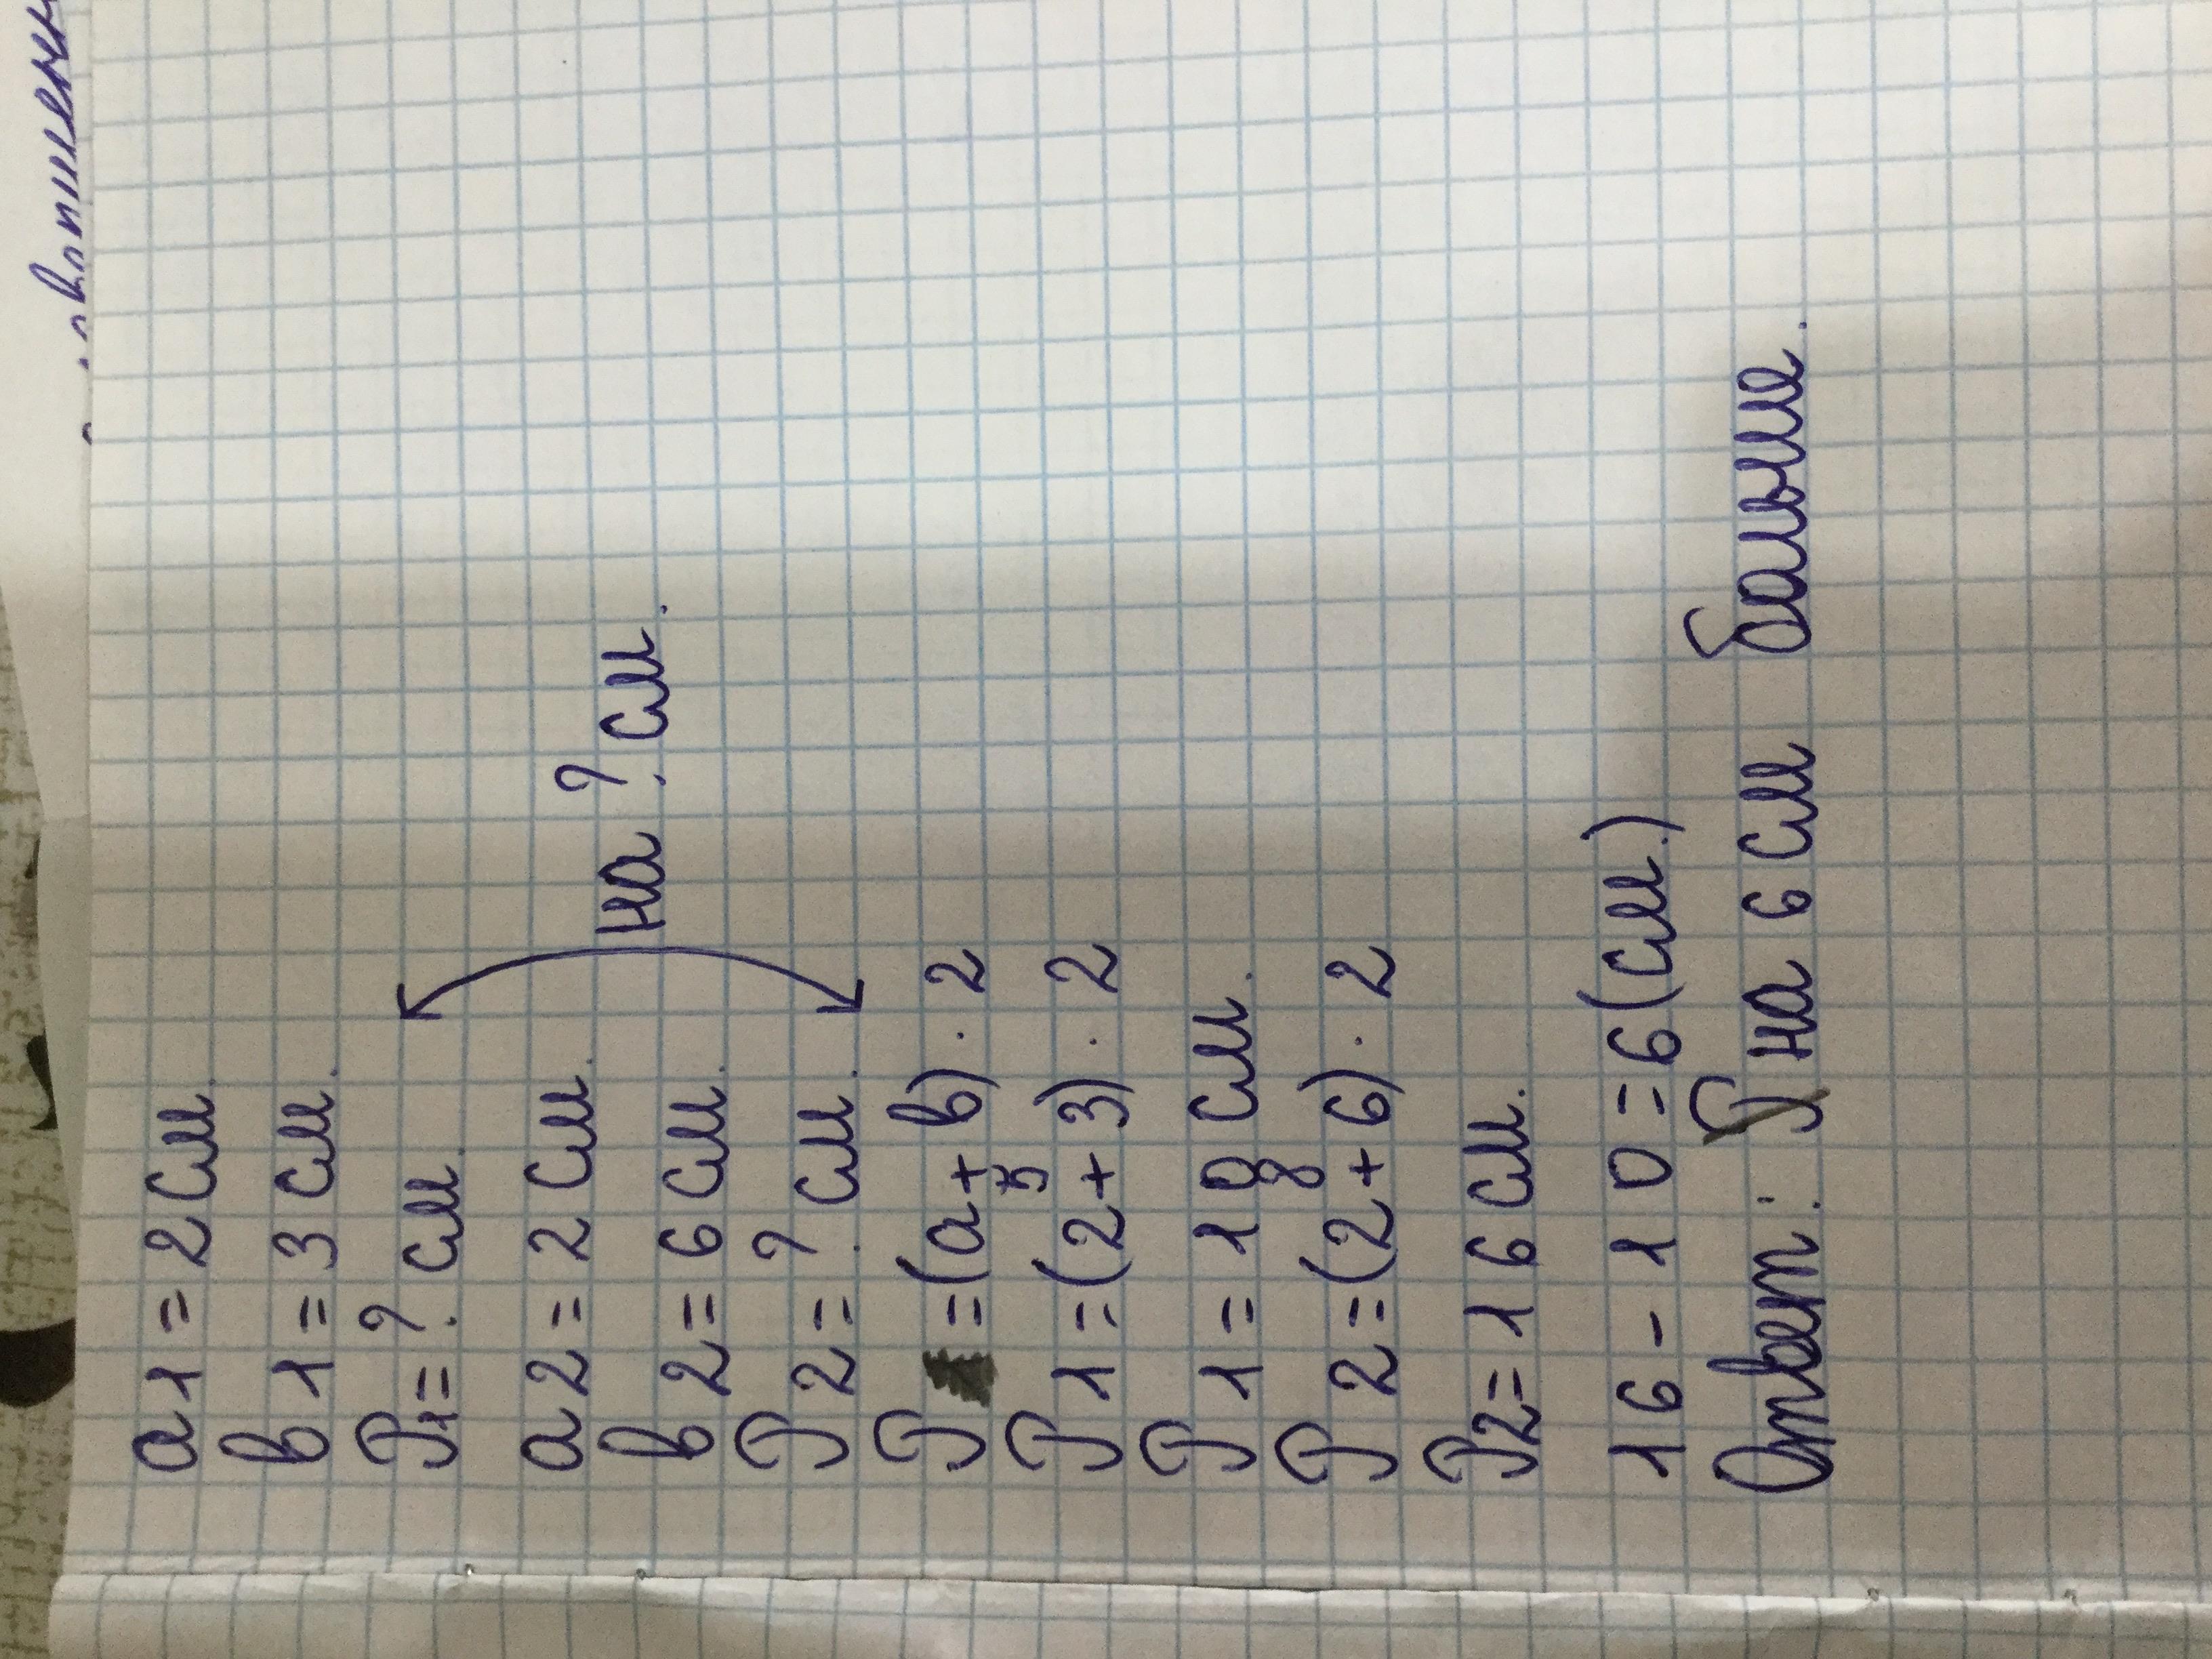 а1=2см.
в1=3см.
P1=? см.
а2=2см.
на ? см.
в2=6см.
P2=? см.
P=(а+в)·2
5
P1=(2+3)·2
P1=10 см.
8
P2=(2+6)·2
P2=16см.
16-10=6(см.)
Ответ: на 6 см больше.